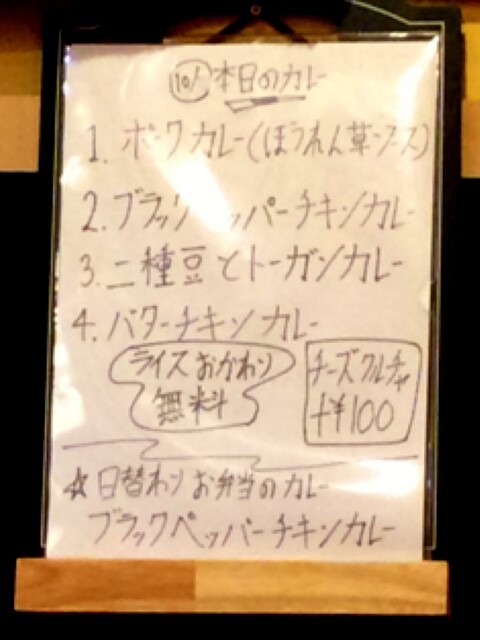 10/ 本日のカレー
1. ポークカレー(ほうれん草ソース)
2. ブラックペッパーチキンカレー
3. 二種豆とトーガンカレー
4. バターチキンカレー
ライスおかわり
無料
チーズクルチャ
+¥100
☆日替わりお弁当のカレー
ブラックペッパーチキンカレー